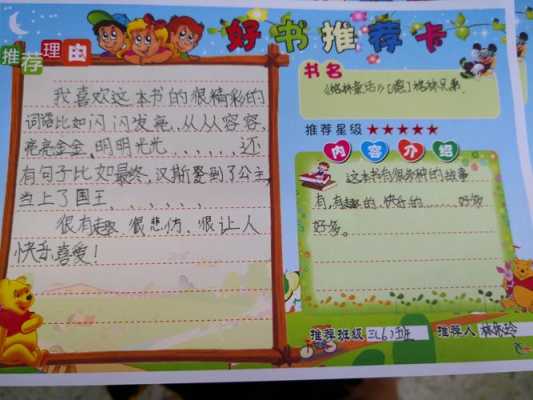 好书推荐卡
推荐理由
我喜欢这本书的很精彩的
词语比如闪闪发亮、从从容容、
亮亮金金、明明光光、、、、、、还
有句子比如最终，汉斯娶到了公主，
当上了国王、、、、、、
很有趣 很悲伤、很让人
快乐喜爱！
书名
《格林童话》[德]格林兄弟.
推荐星级★★★★★
内容介绍
这本书有很多种的故事
有，有趣的、快乐的……好多
好多。
推荐班级 三(6)班 推荐人 林